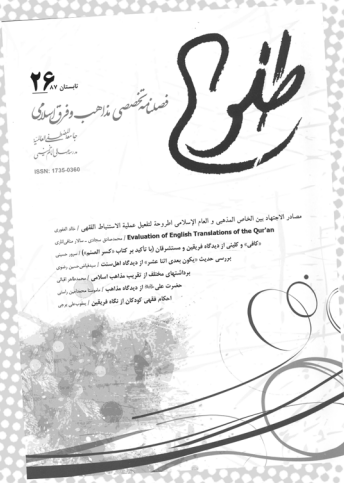 طلوع
۲۶
تابستان ۸۷
فصلنامه تخصصی مذاهب و فرق اسلامی
ISSN: 1735-0360
مصادر الاجتهاد بین الخاص المذهبی و العام الإسلامی اطروحة لتفعیل عملیة الاستنباط الفقهی / خالد الغفوری
Evaluation of English Translations of the Qur'an / محمدصادق سجادی - سالار منافی اناری
«کافی» و کلینی از دیدگاه فریقین و مستشرقان (با تأکید بر کتاب «کسر الصنم») / حسینی
بررسی حدیث «یکون بعدی اثنا عشر» از دیدگاه اهل‌سنت / حسین رضوی
برداشتهای مختلف از تقریب مذاهب اسلامی / محمدطاهر اقبالی
حضرت علی از دیدگاه مذاهب / محمدامین راستی
احکام فقهی کودکان از نگاه فریقین / یعقوب‌علی برجی